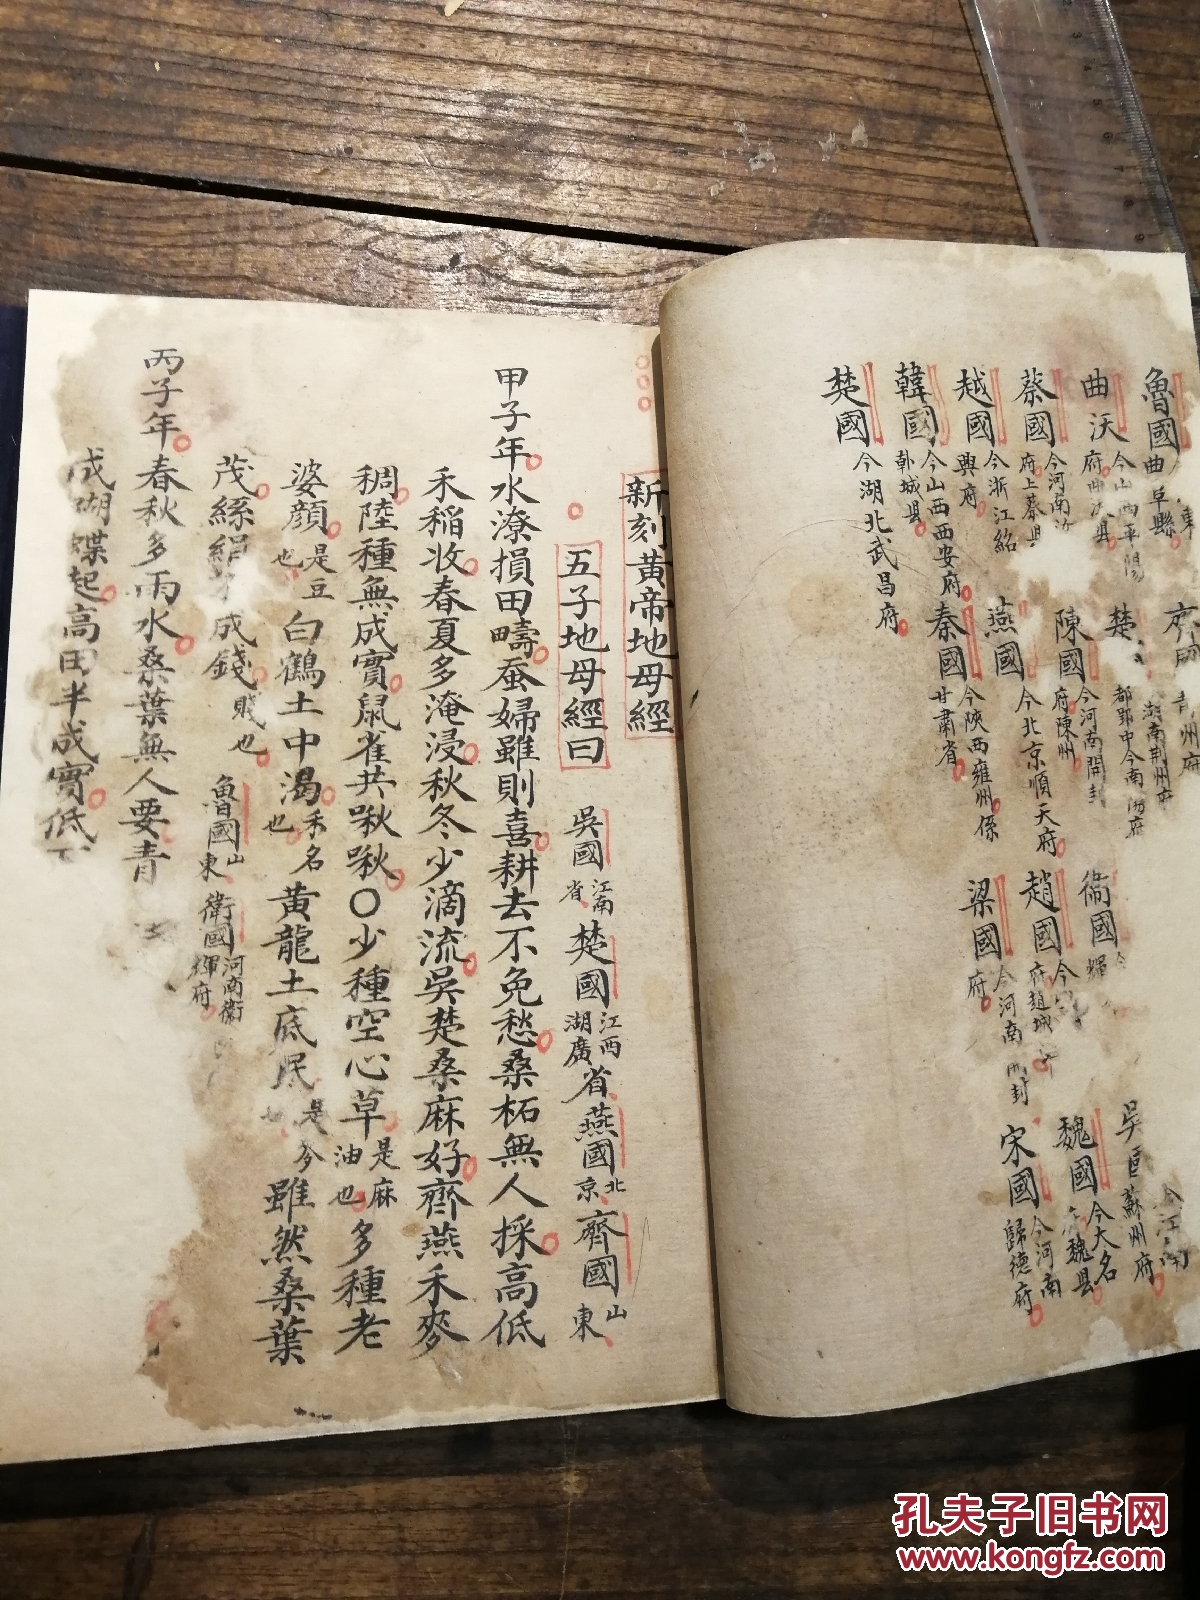 魯國 東曲阜縣 齊國 青州府
曲沃 今山西平陽府曲沃县 楚 湖南荆州府都郢中今南 府 吳 今江南蘇州府
蔡國 今河南汝府上蔡县 陳國 今河南開封府陳州 衛國 今 輝 魏國 今大名 魏县
越國 今浙江紹興府 燕國 今北京順天府 趙國 今 府趙城 宋國 今河南歸德府
韓國 今山西西安府韩城县 秦國 今陝西雍州係甘肅省 梁國 今河南開封府
楚國 今湖北武昌府
新刻黄帝地母經
五子地母經曰 吳國 江南省 楚國 江西湖廣省 燕國 北京 齊國 山東
甲子年水潦損田疇蚕婦雖則喜耕去不免愁桑柘無人採高低
禾稲收春夏多淹浸秋冬少滴流吳楚桑麻好齊燕禾麥
稠陸種無成實鼠雀共啾啾〇少種空心草 是麻油也 多種老
婆顔 是豆也 白鶴土中渴 禾名也 黄龍土底眠 是 也 雖然桑葉
茂絲絹 成錢 賤也 魯國 山東 衛國 河南衛輝府
丙子年春秋多雨水桑葉無人要青
成湖蝶起高田半成實低下
孔夫子旧书网
www.kongfz.com